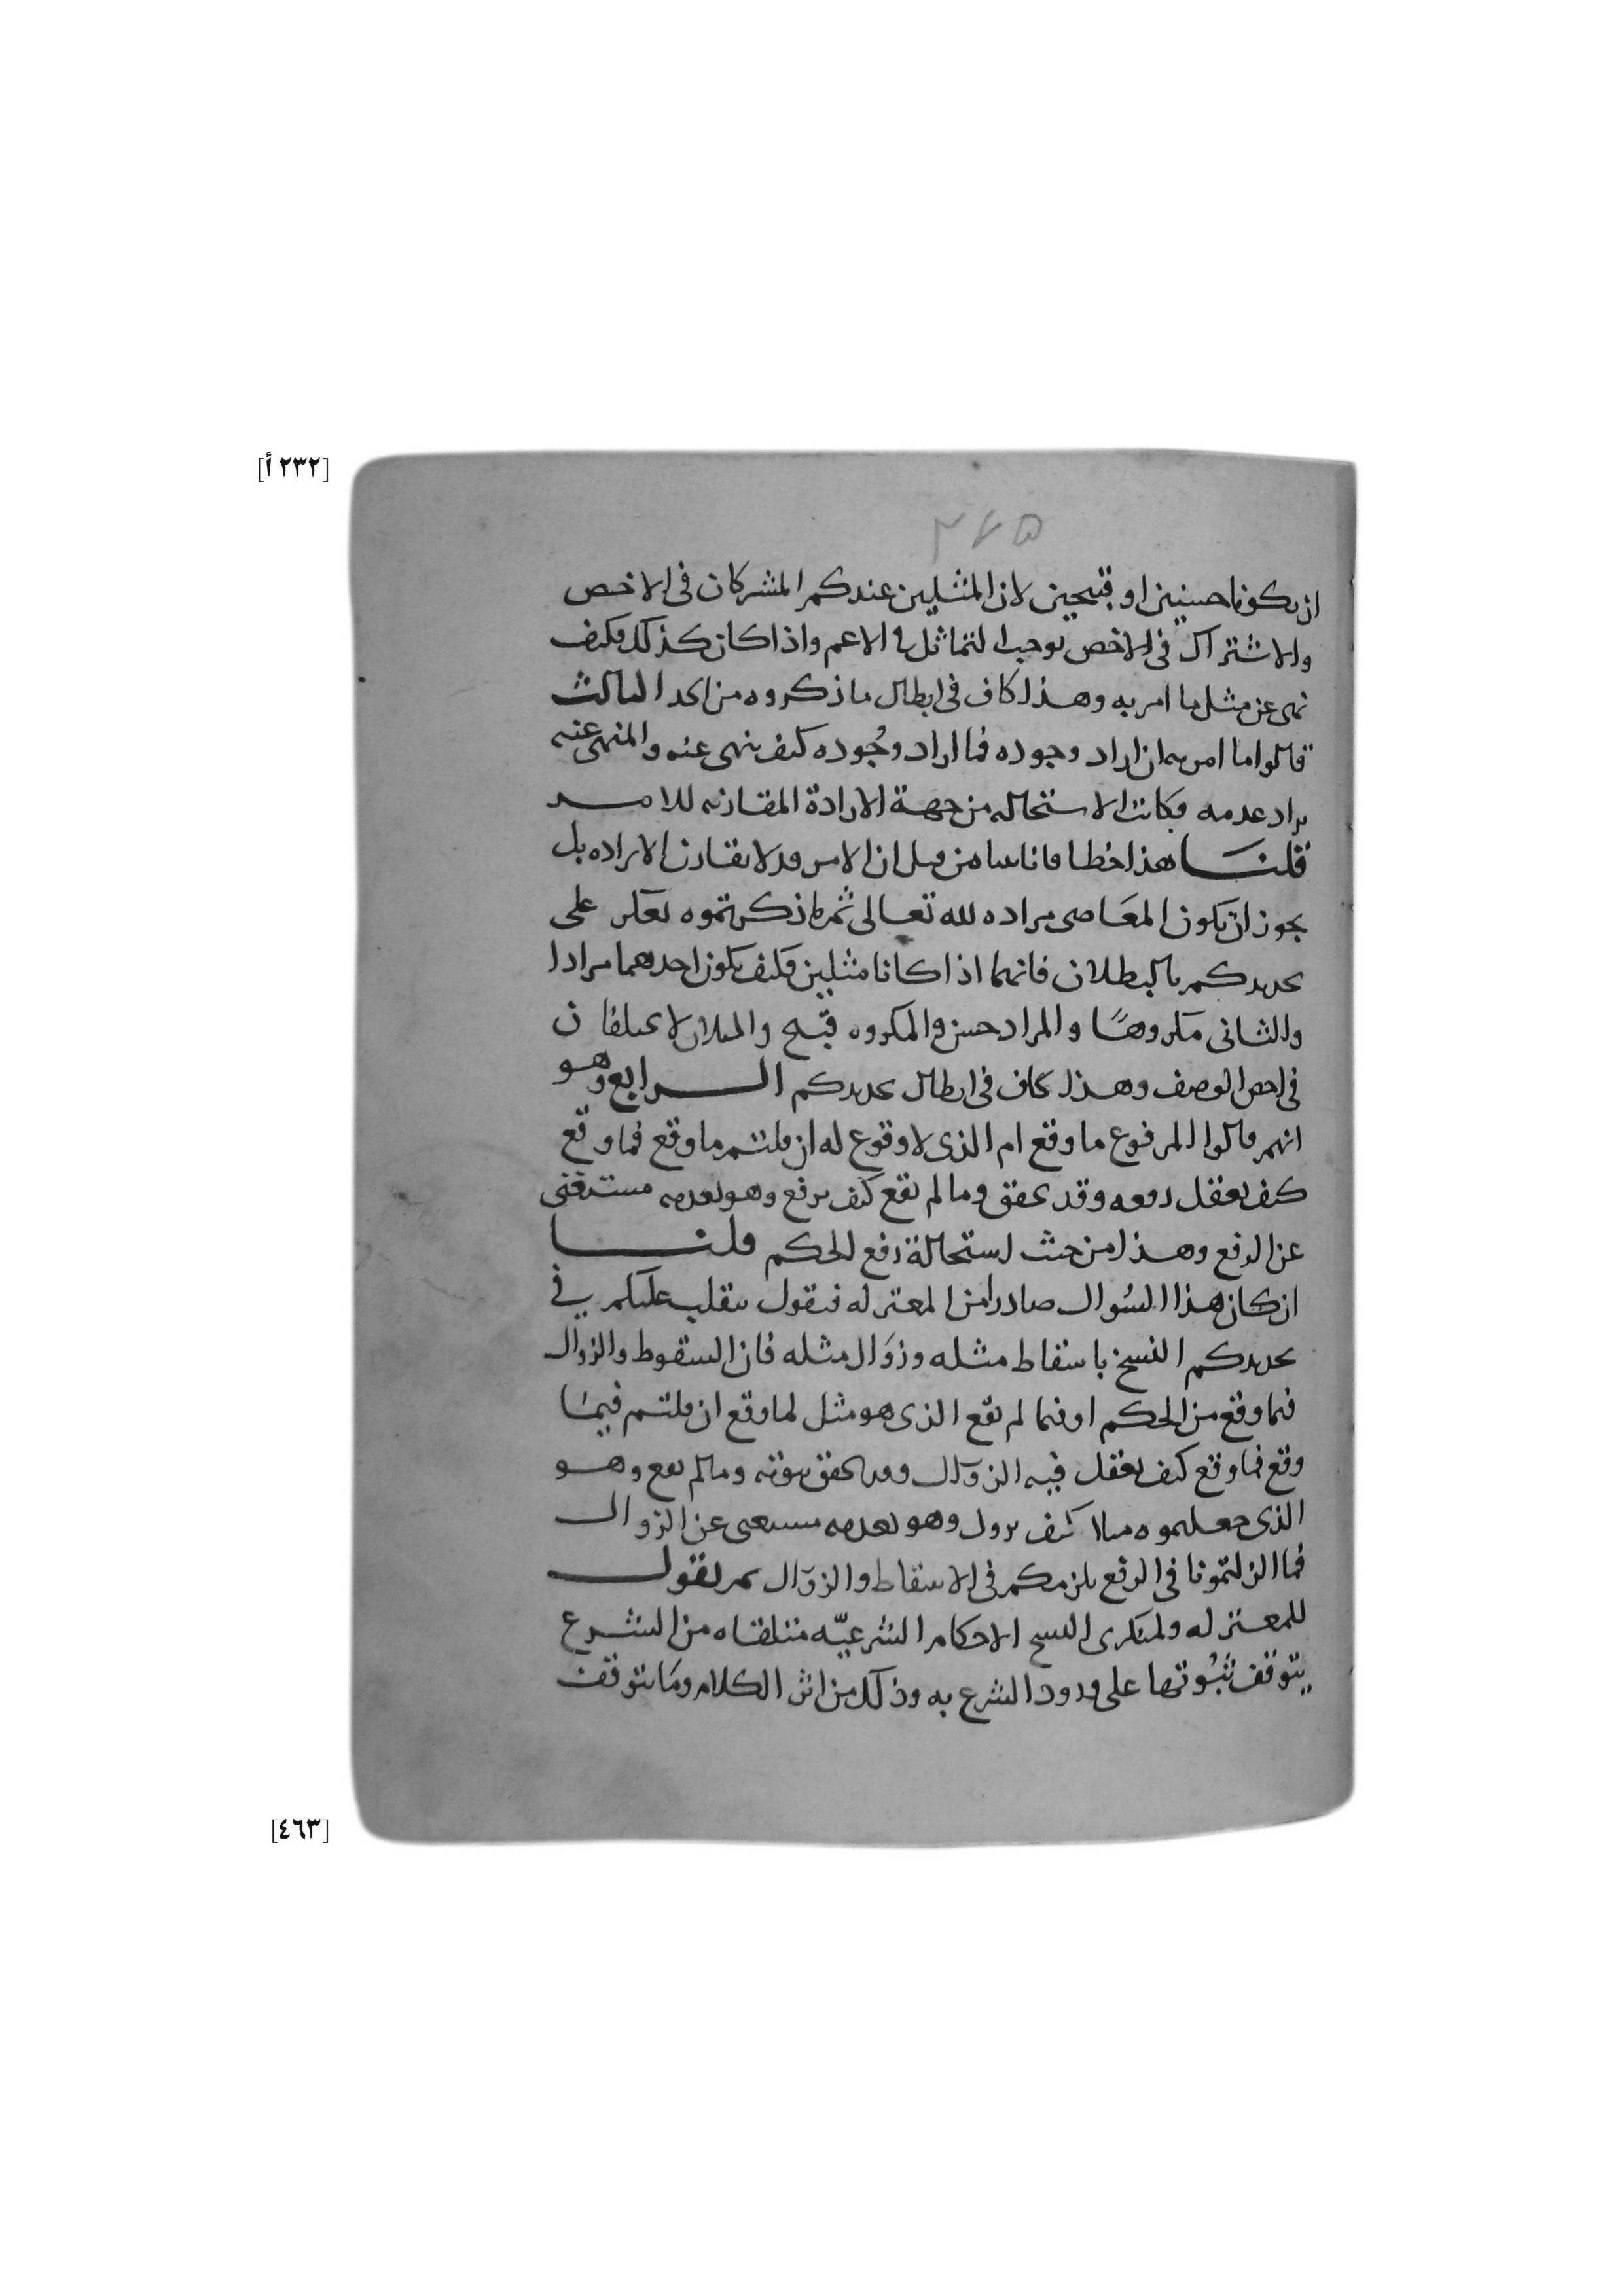 [٢٣٢ أ]
٢٦٥
ان يكونا حسنين او قبيحين لان المثلين عندكم المشتركان فى الاخص
والاشتراك فى الاخص يوجب التماثل فى الاعم واذا كان كذلك فكيف
نهى عن مثل ما امر به وهذا كاف فى ابطال ما ذكروه من الحد الثالث
قالوا ما امر به ان اراد وجوده فما اراد وجوده كيف ينهى عنه والمنهى عنه
يراد عدمه فكانت الاستحاله من جهة الارادة المقارنه للامر
قلنا هذا خطا فانا بينا من قبل ان الامر قد لا يقارن الاراده بل
يجوز ان يكون المعاصى مراده لله تعالى ثم ما ذكرتموه يعكر على
تحديدكم بالبطلان فانهما اذا كانا مثلين فكيف يكون احدهما مرادا
والثانى مكروها والمراد حسن والمكروه قبيح والمثلان لا يختلفان
فى اخص الوصف وهذا كاف فى ابطال تحديدكم الرابع وهو
انهم قالوا المرفوع ما وقع ام الذى لا وقوع له ان قلتم ما وقع فما وقع
كيف يعقل رفعه وقد تحقق وما لم يقع كيف يرفع وهو بعدمه مستغنى
عن الرفع وهذا من حيث استحالة رفع الحكم قلنا
ان كان هذا السؤال صادرا من المعتزله فنقول ينقلب عليكم فى
تحديدكم النسخ باسقاط مثله وزوال مثله فان السقوط والزوال
فيما وقع من الحكم او فيما لم يقع الذى هو مثل لما وقع ان قلتم فيما
وقع فما وقع كيف يعقل فيه الزوال وقد تحقق ثبوته وما لم يقع وهو
الذى جعلتموه مثلا كيف يزول وهو بعدمه مستغنى عن الزوال
فما الزلتمونا فى الرفع يلزمكم فى الاسقاط والزوال ثم نقول
للمعتزله ولمنكرى النسخ الاحكام الشرعيّه متلقاه من الشرع
يتوقف ثبوتها على ورود الشرع به وذلك من اثر الكلام وما يتوقف
[٤٦٣]